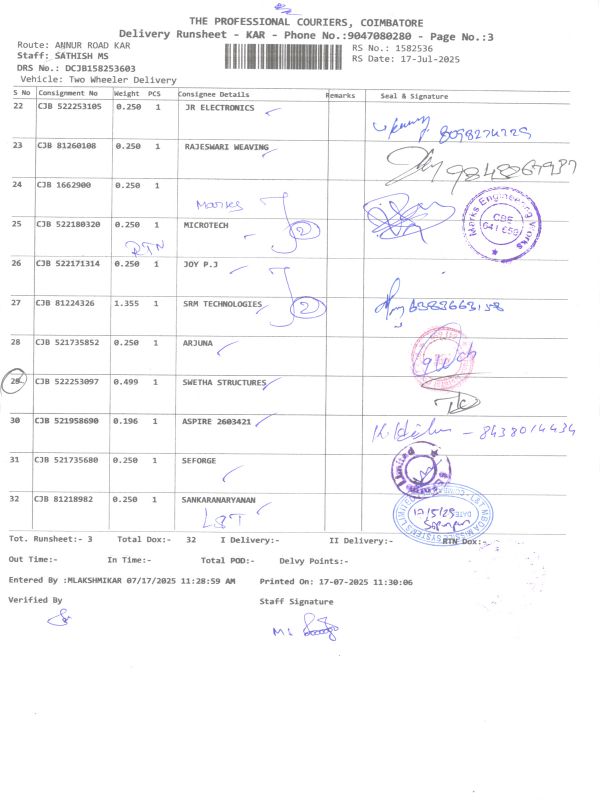 THE PROFESSIONAL COURIERS, COIMBATORE
Delivery Runsheet - KAR - Phone No.:9047080280 - Page No.:3
Route: ANNUR ROAD KAR
RS No.: 1582536
Staff: SATHISH MS
RS Date: 17-Jul-2025
DRS No.: DCJB158253603
Vehicle: Two Wheeler Delivery
S No Consignment No Weight PCS Consignee Details Remarks Seal & Signature
22 CJB 522253105 0.250 1 JR ELECTRONICS
8098274729
23 CJB 81260108 0.250 1 RAJESWARI WEAVING
24 CJB 1662900 0.250 1
Marks
Marks Engineering Works
CBE
641 659
25 CJB 522180320 0.250 1 MICROTECH 2
RTN
26 CJB 522171314 0.250 1 JOY P.J
27 CJB 81224326 1.355 1 SRM TECHNOLOGIES 2
6383663158
28 CJB 521735852 0.250 1 ARJUNA
29 CJB 522253097 0.499 1 SWETHA STRUCTURES
30 CJB 521958690 0.196 1 ASPIRE 2603421
- 8438014434
31 CJB 521735680 0.250 1 SEFORGE
Limited
32 CJB 81218982 0.250 1 SANKARANARYANAN
L&T
L&T MBDA MISSILE SYSTEMS LIMITED
DATE
Tot. Runsheet:- 3 Total Dox:- 32 I Delivery:- II Delivery:- RTN Dox:-
Out Time:- In Time:- Total POD:- Delvy Points:-
Entered By :MLAKSHMIKAR 07/17/2025 11:28:59 AM Printed On: 17-07-2025 11:30:06
Verified By Staff Signature